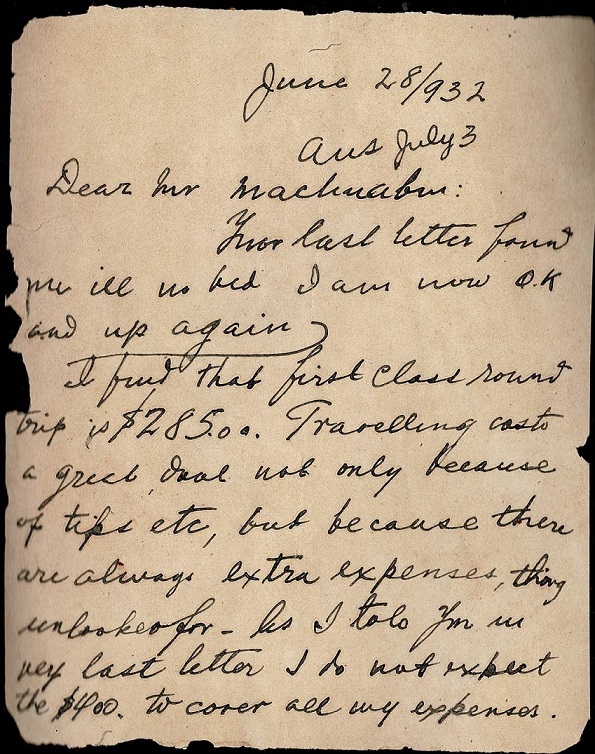 June 28/932
Ans July 3
Dear Mr
Your last letter found
me ill in bed I am now O.K
and up again
I find that first class round
trip is $285.00. Travelling costs
a great deal not only because
of tips etc, but because there
are always extra expenses, things
unlooked for - As I told you in
my last letter I do not expect
the $400. to cover all my expenses.